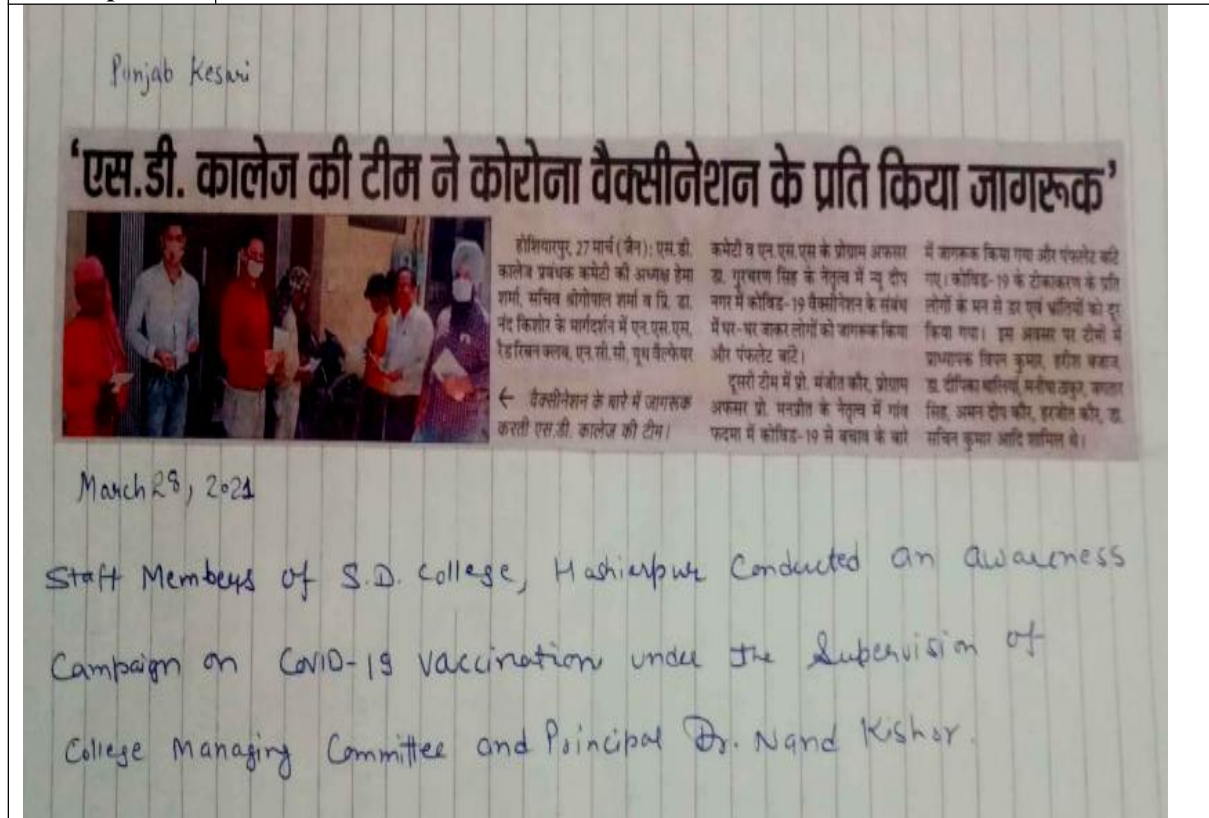 Punjab Kesari
'एस.डी. कालेज की टीम ने कोरोना वैक्सीनेशन के प्रति किया जागरूक'
होशियारपुर, 27 मार्च (जैन): एस.डी.
कालेज प्रबंधक कमेटी की अध्यक्ष हेमा
शर्मा, सचिव श्रीगोपाल शर्मा व प्रि. डा.
नंद किशोर के मार्गदर्शन में एन.एस.एस,
रैड रिबन क्लब, एन.सी.सी, यूथ वैल्फेयर
← वैक्सीनेशन के बारे में जागरूक
करती एस.डी. कालेज की टीम।
कमेटी व एन.एस.एस के प्रोग्राम अफसर
डा. गुरचरण सिंह के नेतृत्व में न्यू दीप
नगर में कोविड-19 वैक्सीनेशन के संबंध
में घर-घर जाकर लोगों को जागरूक किया
और पंफलेट बांटे।
दूसरी टीम में प्रो. मंजीत कौर, प्रोग्राम
अफसर प्रो. मनप्रीत के नेतृत्व में गांव
फदमा में कोविड-19 से बचाव के बारे
में जागरूक किया गया और पंफलेट बांटे
गए। कोविड-19 के टीकाकरण के प्रति
लोगों के मन से डर एवं भ्रांतियों को दूर
किया गया। इस अवसर पर टीमों में
प्राध्यापक विपन कुमार, हरीश बजाज,
डा. दीपिका वालिया, मनीषा ठाकुर,
सिंह, अमन दीप कौर, हरजोत कौर, डा.
सचिन कुमार आदि शामिल थे।
March 28, 2021
Staff Members of S.D. College, Hoshiarpur Conducted an awareness
Campaign on COVID-19 vaccination under the Supervision of
College Managing Committee and Principal Dr. Nand Kishor.